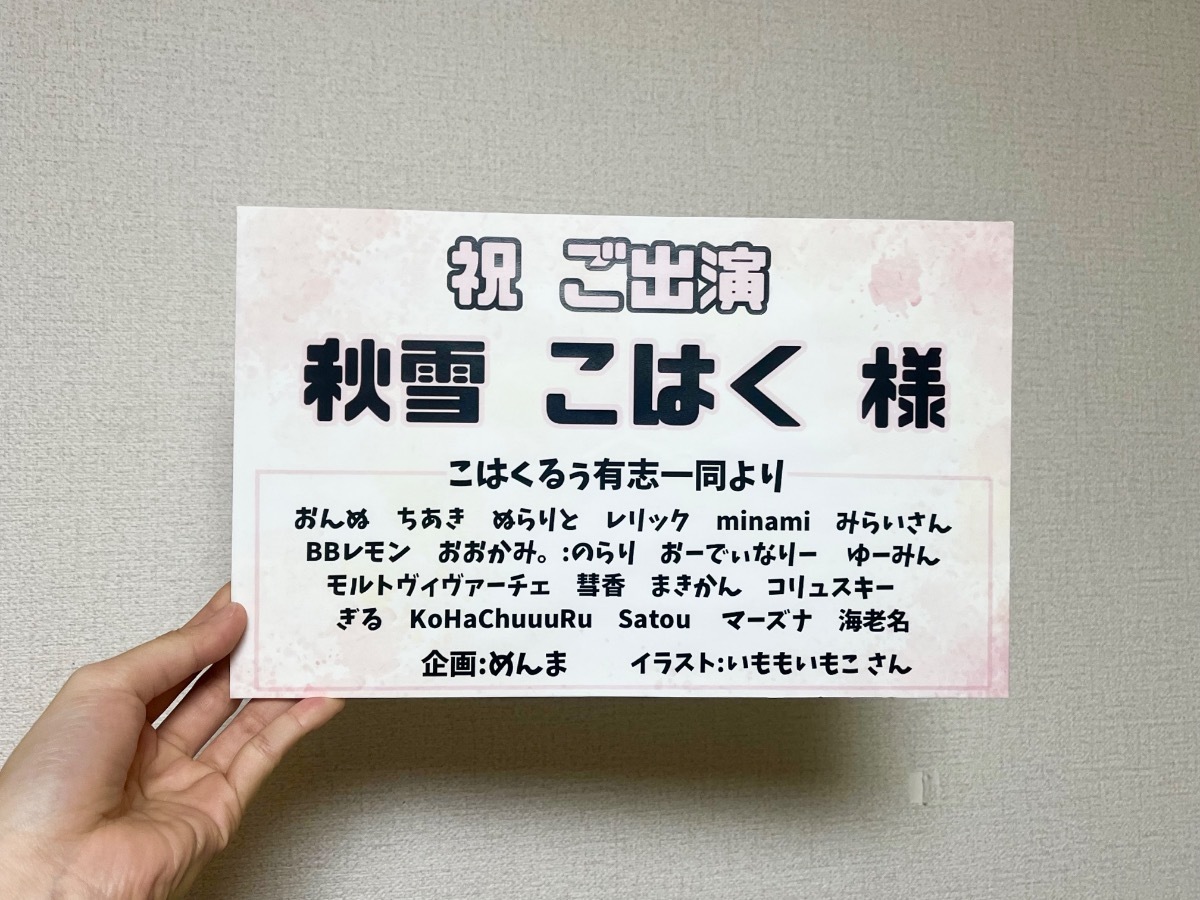 祝 ご出演
秋雪 こはく 様
こはくるぅ有志一同より
おんぬ ちあき ぬらりと レリック minami みらいさん
BBレモン おおかみ。:のらり おーでぃなりー ゆーみん
モルトヴィヴァーチェ 彗香 まきかん コリュスキー
ぎる KoHaChuuuRu Satou マーズナ 海老名
企画:めんま イラスト:いももいもこ さん